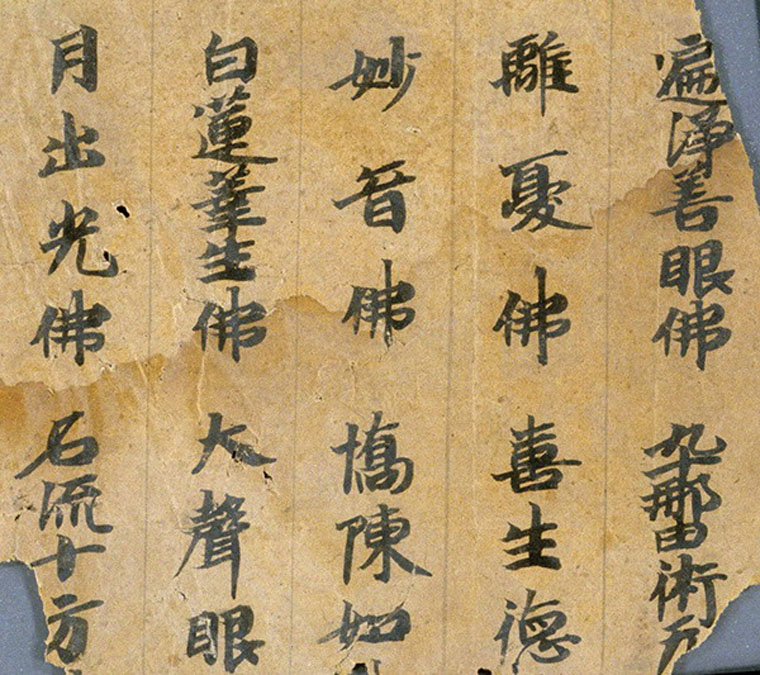 遍淨善眼佛 術
離憂佛 喜生德
妙音佛 憍陳如
白蓮華生佛 大聲眼
月出光佛 名流十方